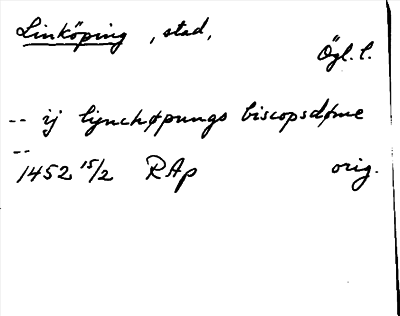 Linköping, stad,
Ögl. l.
-- ij lynchøpungs biscopsdøme
--
1452 15/2 RAp orig.